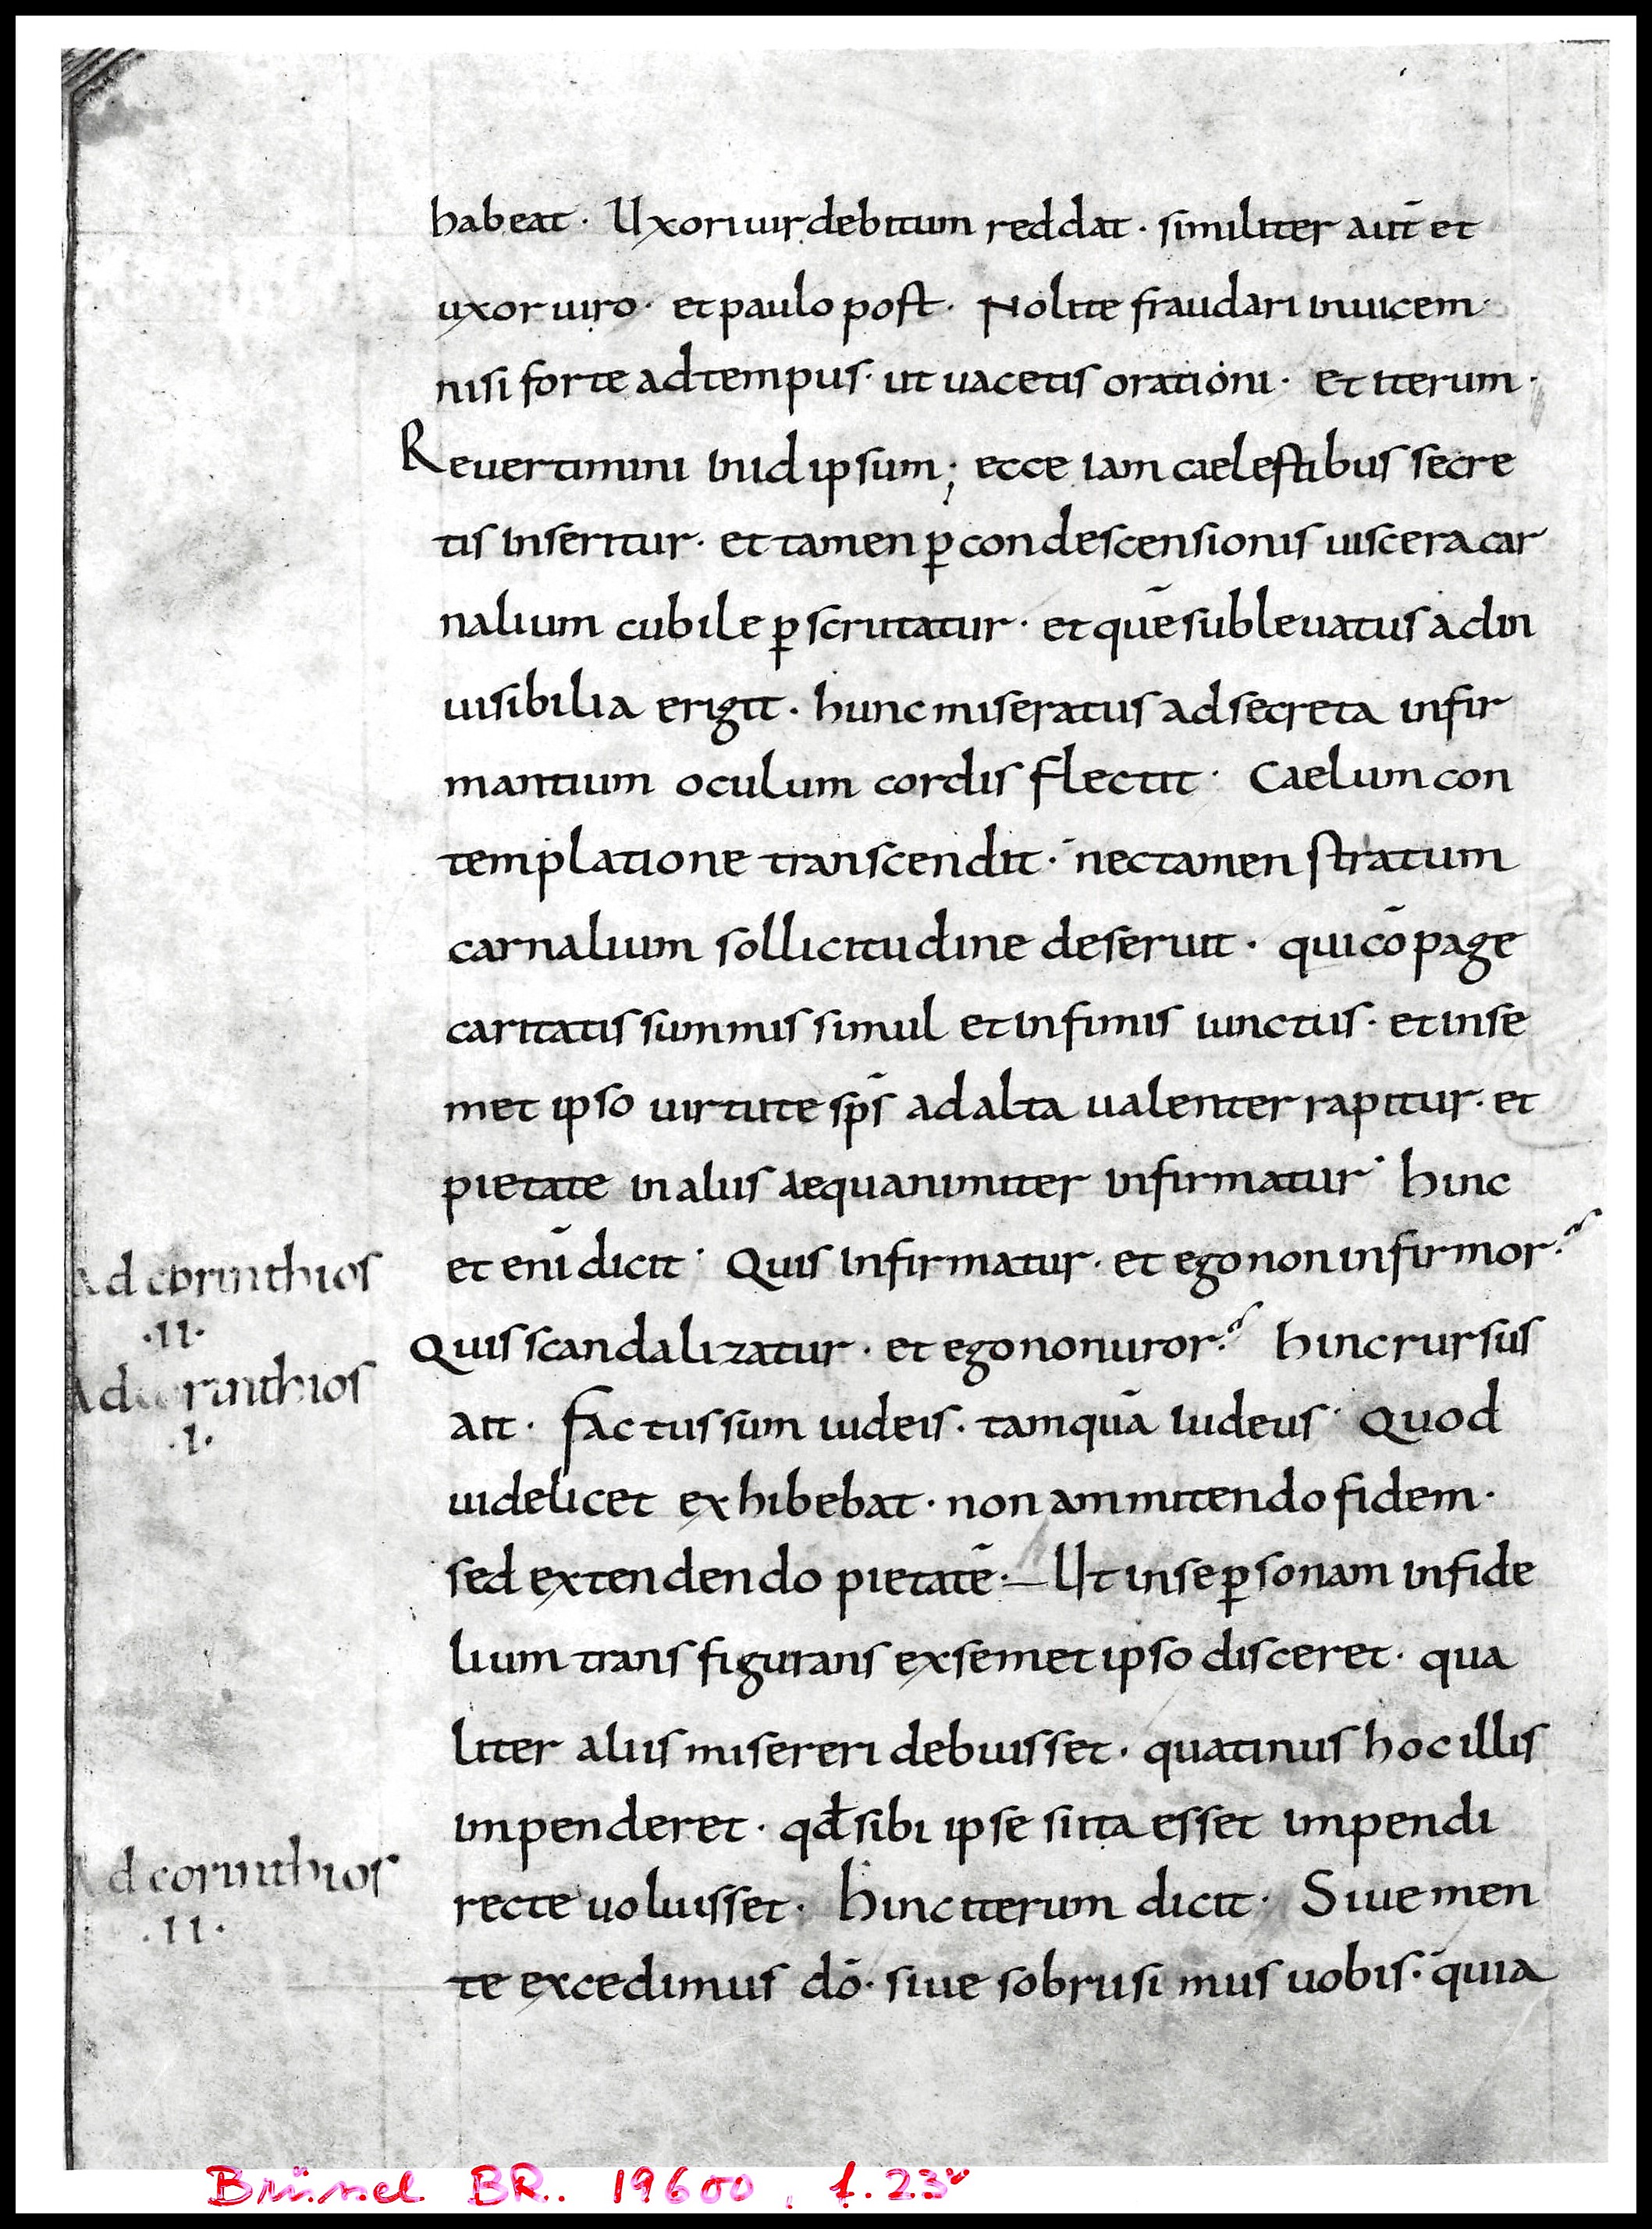 habeat · Uxori uir debitum reddat · similiter aut̄ et
uxor uiro · et paulo post · Nolite fraudari inuicem ·
nisi forte ad tempus · ut uacetis orationi · et iterum ·
Reuertimini in id ipsum ; ecce iam caelestibus secre
tis inseritur · et tamen ꝑ condescensionis uiscera car
nalium cubile ꝑscrutatur · et quē subleuatus ad in
uisibilia erigit · hunc miseratus ad secreta infir
mantium oculum cordis flectit · Caelum con
templatione transcendit · nec tamen stratum
carnalium sollicitudine deseruit · qui cōpage
caritatis summis simul et infimis iunctus · et in se
met ipso uirtute sp̄s ad alta ualenter rapitur · et
pietate in aliis aequanimiter infirmatur · hinc
et enī dicit · Quis infirmatur · et ego non infirmor ?
Ad corinthios
·II·
Quis scandalizatur · et ego non uror ? hinc rursus
Ad corinthios
·I·
ait · factus sum iudeis · tamquā iudeus · Quod
uidelicet exhibebat · non ammittendo fidem ·
sed extendendo pietatē · Ut in se ꝑsonam infide
lium transfigurans ex semet ipso disceret · qua
liter aliis misereri debuisset · quatinus hoc illis
impenderet · qđ sibi ipse si ita esset impendi
Ad corinthios
·II·
recte uoluisset · hinc iterum dicit · Siue men
te excedimus dō · siue sobrii simus uobis · quia
Brüssel BR. 19600, f. 23v